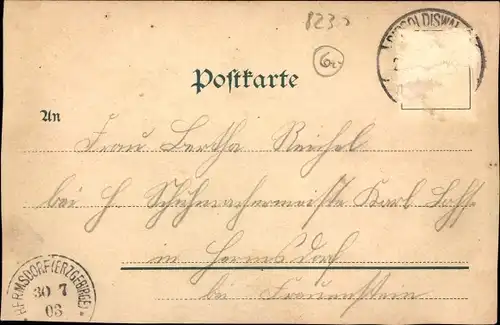 8230
DIPPOLDISWALDE
Postkarte
An
Frau Bertha Reichel
bei H. Schuhmachermeister Karl
in Hermsdorf
bei Frauenstein
HERMSDORF (ERZGEBIRGE)
30 7
03